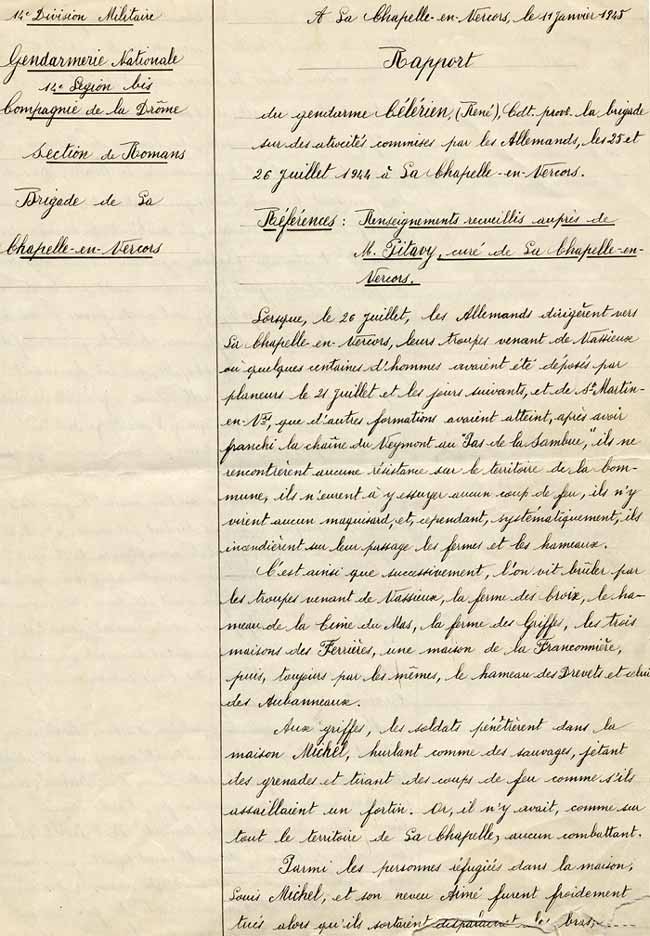 14e Division Militaire
Gendarmerie Nationale
14e Légion bis
Compagnie de la Drôme
Section de Romans
Brigade de La
Chapelle-en-Vercors
A La Chapelle-en-Vercors, le 11 Janvier 1945
Rapport
du gendarme Célérien, (René), Cdt. prov. la brigade
sur des atrocités commises par les Allemands, les 25 et
26 Juillet 1944 à La Chapelle-en-Vercors.
Références : Renseignements recueillis auprès de
M. Pitavy, curé de La Chapelle-en-
Vercors.
Lorsque, le 26 Juillet, les Allemands dirigèrent vers
La Chapelle-en-Vercors, leurs troupes venant de Vassieux
où quelques centaines d'hommes avaient été déposés par
planeurs le 21 Juillet et les jours suivants, et de St Martin-
en-Vrs, que d'autres formations avaient atteint, après avoir
franchi la chaîne du Veymont au "Pas-de la Sambue," ils ne
rencontrèrent aucune résistance sur le territoire de la Com-
mune, ils n'eurent à y essuyer aucun coup de feu, ils n'y
virent aucun maquisard, et, cependant, systématiquement, ils
incendièrent sur leur passage les fermes et les hameaux.
C'est ainsi que successivement, l'on vit brûler par
les troupes venant de Vassieux, la ferme des Croix, le ha-
meau de la Cime du Mas, la ferme des Griffes, les trois
maisons des Ferrières, une maison de la Franconnière,
puis, toujours par les mêmes, le hameau des Drevets et celui
des Aubanneaux.
Aux griffes, les soldats pénétrèrent dans la
maison Michel, hurlant comme des sauvages, jetant
des grenades et tirant des coups de feu comme s'ils
assaillaient un fortin. Or, il n'y avait, comme sur
tout le territoire de La Chapelle, aucun combattant.
Parmi les personnes réfugiées dans la maison,
Louis Michel, et son neveu Aimé furent froidement
tués alors qu'ils sortaient les bras,